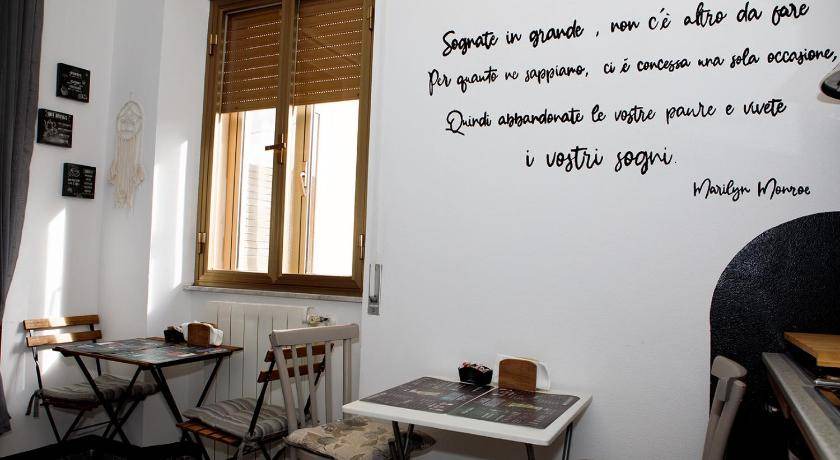 Sognate in grande, non c'é altro da fare
Per quanto ne sappiamo, ci é concessa una sola occasione,
Quindi abbandonate le vostre paure e vivete
i vostri sogni.
Marilyn Monroe